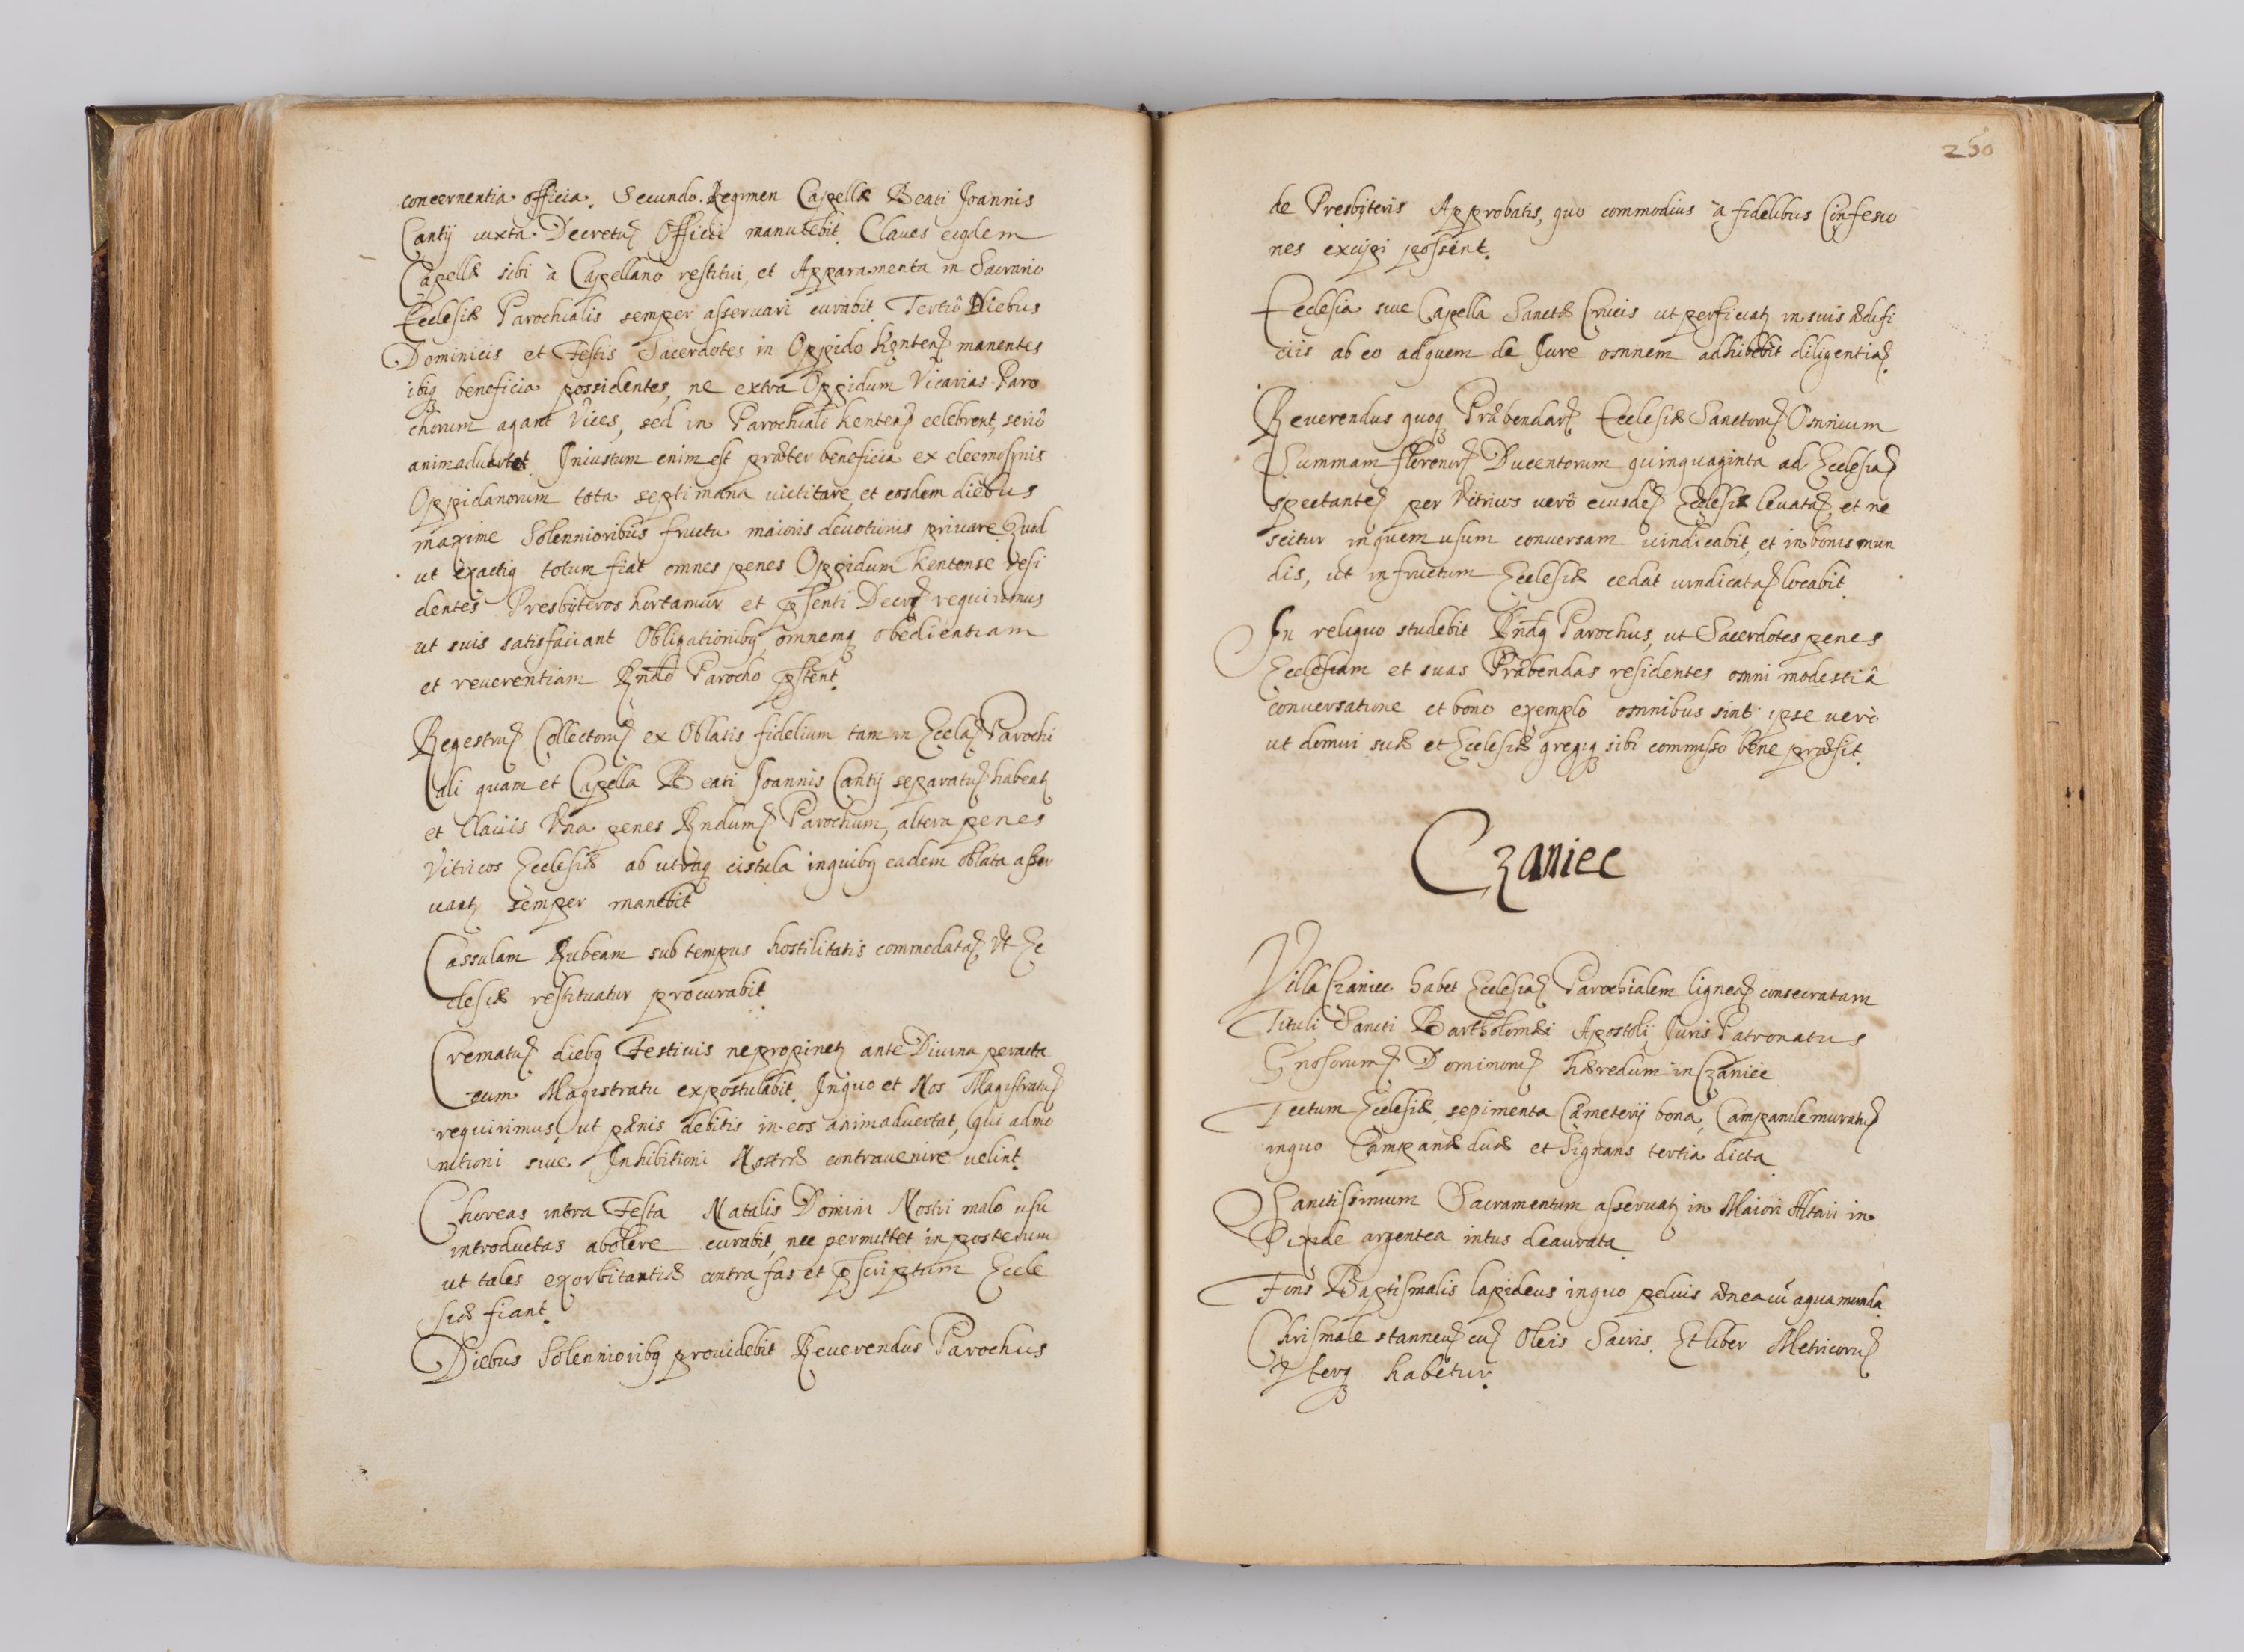 concernentia officia. Secundo. Regimen Capellæ Beati Joannis
Cantij iuxta Decretuȝ Officii manutebit. Claues eiqdem
Capellæ sibi à Capellano restitui, et Apparamenta in Sacrario
Ecclesiæ Parochialis semper asseruari curabit. Tertiò Diebus
Dominicis et Festis Sacerdotes in Oppido Kenteȝ manentes
ibiq beneficia possidentes, ne extra Oppidum Vicarias Paro
chorum agant Vices, sed in Parochiali Kenteȝ celebrent, seriò
animaduertet. Iniustum enim est præter beneficia ex eleemosynis
Oppidanorum tota septimana uictitare, et eosdem diebus
maxime Solennioribus fructu maioris deuotionis priuare. Quod
ut exactiq totum fiat omnes penes Oppidum Kentense resi
dentes Presbyteros hortamur et pſenti Decrȝ requirimus
ut suis satisfaciant Obligationibq, omnemq obedientiam
et reuerentiam Rndo Parocho pstent.
Regestruȝ Collectoruȝ ex Oblatis fidelium tam in Ecclaȝ Parochi
ali quam et Capella Beati Joannis Cantij separatuȝ habeatȝ
et Clauis Vna penes Rndumȝ Parochum, altera penes
Vitricos Ecclesiæ ab utraq cistula in quibq eadem oblata asser
uantȝ semper manebit
Cassulam Rubeam sub tempus hostilitatis commodataȝ Vt Ec
clesiæ restituatur procurabit.
Crematuȝ diebq Festiuis ne propinetȝ ante Diuina peracta
cum Magistratu expostulabit. In quo et Nos Magistratuȝ
requirimus, ut pænis debitis in eos animaduertat, qui admo
nitioni siue Inhibitioni Nostræ contrauenire uelint.
Choreas intra Festa Natalis Domini Nostri malo usu
introductas abolere curabit, nec permittet in posterum
ut tales exorbitantiæ contra fas et pſcriptum Eccle
siæ fiant.
Diebus Solennioribq prouidebit Reuerendus Parochus
250
de Presbyteris Approbatis, quo commodius à fidelibus Confessio
nes excipi possent.
Ecclesia siue Capella Sanctæ Crucis ut perficiatȝ in suis ædifi
ciis ab eo ad quem de Jure omnem adhibebit diligentiaȝ.
Reuerendus quoq Præbendarȝ Ecclesiæ Sanctoruȝ Omnium
Summam florenorȝ Ducentorum quinquaginta ad Ecclesiaȝ
spectanteȝ per Vitricos uerò eiusdeȝ Ecclesiæ leuataȝ, et ne
scitur in quem usum conuersam uindicabit, et in bonis mun
dis, ut in fructum Ecclesiæ cedat uindicataȝ locabit.
In reliquo studebit Rndq Parochus, ut Sacerdotes penes
Ecclesiam et suas Præbendas residentes omni modestiâ
conuersatione et bono exemplo omnibus sint ipse uerò
ut domui suæ et Ecclesiæ gregiq sibi commisso bene præsit.
Czaniec
Villa Czaniec habet Ecclesiaȝ Parochialem ligneaȝ consecratam
Tituli Sancti Bartholomæi Apostoli Juris Patronatus
Gnosorumȝ Dominoruȝ hæredum in Czaniec
Tectum Ecclesiæ, sepimenta Cæmeterij bona, Campanile muratuȝ
in quo Campanæ duæ et Signans tertia dicta
Sanctissimum Sacramentum asseruatȝ in Maiori Altari in
Pixide argentea intus deaurata
Fons Baptismalis lapideus in quo peluis ænea cũ aqua munda.
Chrismale stanneuȝ cuȝ Oleis Sacris. Et liber Metricoruȝ
pterq habetur.